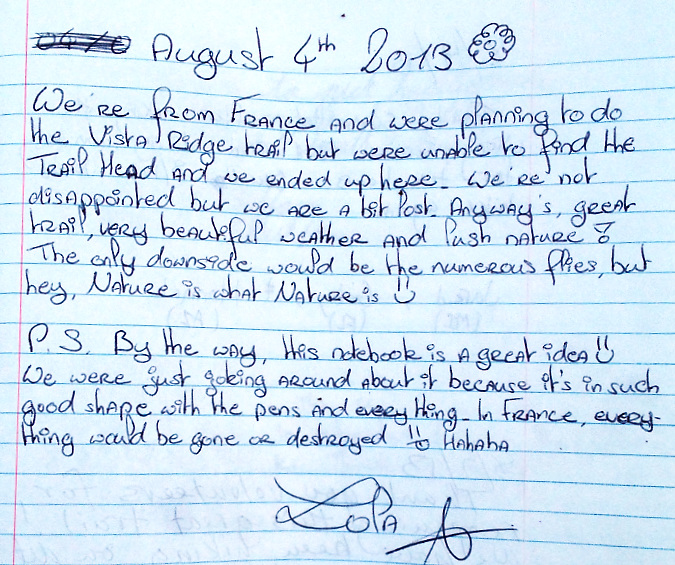 August 4th 2013
We're from France and were planning to do
the Vista Ridge trail but were unable to find the
Trail Head and we ended up here. We're not
disappointed but we are a bit lost. Anyway's, great
trail, very beautiful weather and lush nature!
The only downside would be the numerous flies, but
hey, Nature is what Nature is
P.S. By the way, this notebook is a great idea
We were just joking around about it because it's in such
good shape with the pens and every thing. In France, every-
thing would be gone or destroyed Hahaha
Lola